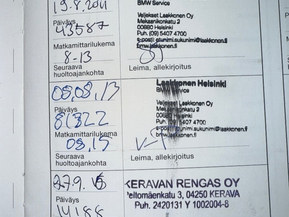 19.8.2011
Päiväys
43587
Matkamittarilukema
8-13
Seuraava
huoltoajankohta
BMW Service
Veljekset Laakkonen Oy
Mekaanikonkatu 2
00880 Helsinki
Puh. (09) 5407 4700
e-posti: etunimi.sukunimi@laakkonen.fi
bmw.laakkonen.fi
Leima, allekirjoitus
05.08.13
Päiväys
Matkamittarilukema
08.15
Seuraava
huoltoajankohta
Laakkonen Helsinki
BMW Service
Veljekset Laakkonen Oy
Mekaanikonkatu 2
00880 Helsinki
Puh. (09) 5407 4700
e-posti: etunimi.sukunimi@laakkonen.fi
bmw.laakkonen.fi
Leima, allekirjoitus
Päiväys
KERAVAN RENGAS OY
Peltomäenkatu 3, 04250 KERAVA
Puh. 2420131 Y 1002004-8